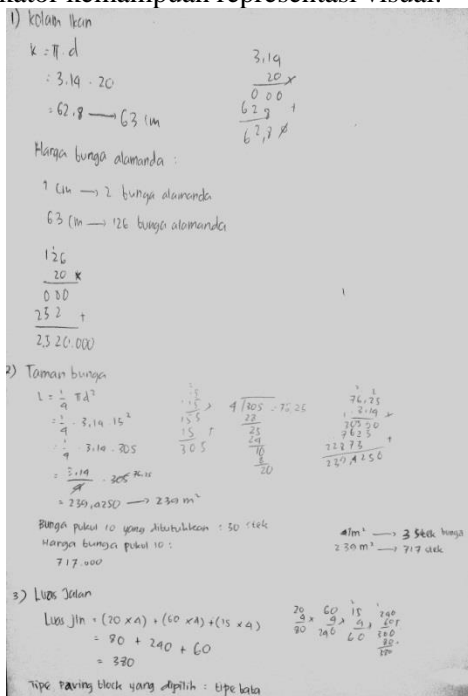 kator kemampuan representasi visual.
1) kolam Ikan
k = π . d
= 3,14 . 20
= 62,8 → 63 cm
3,14
20 x
000
628 +
62,8
Harga bunga alamanda :
1 cm → 2 bunga alamanda
63 cm → 126 bunga alamanda
126
20 x
000
252 +
2.520.000
2) Taman bunga
L = 1/4 πd²
= 1/4 . 3,14 15²
= 1/4 . 3,14 . 305
= 3,14/4 . 305 76,25
= 239,4250 → 239 m²
4 √305 = 76,25
76,25
3,14 x
22875 +
2394250
Bunga pukul 10 yang dibutuhkan : 30 stek
Harga bunga pukul 10 :
717.000
1/m² → 3 stek bunga
239 m² → 717 stek
3) Luas Jalan
Luas jln = (20 x 4) + (60 x 4) + (15 x 4)
= 80 + 240 + 60
= 380
20
4 x
80
60
4 x
240
15
4 x
60
Tipe Paving block yang dipilih : tipe bata